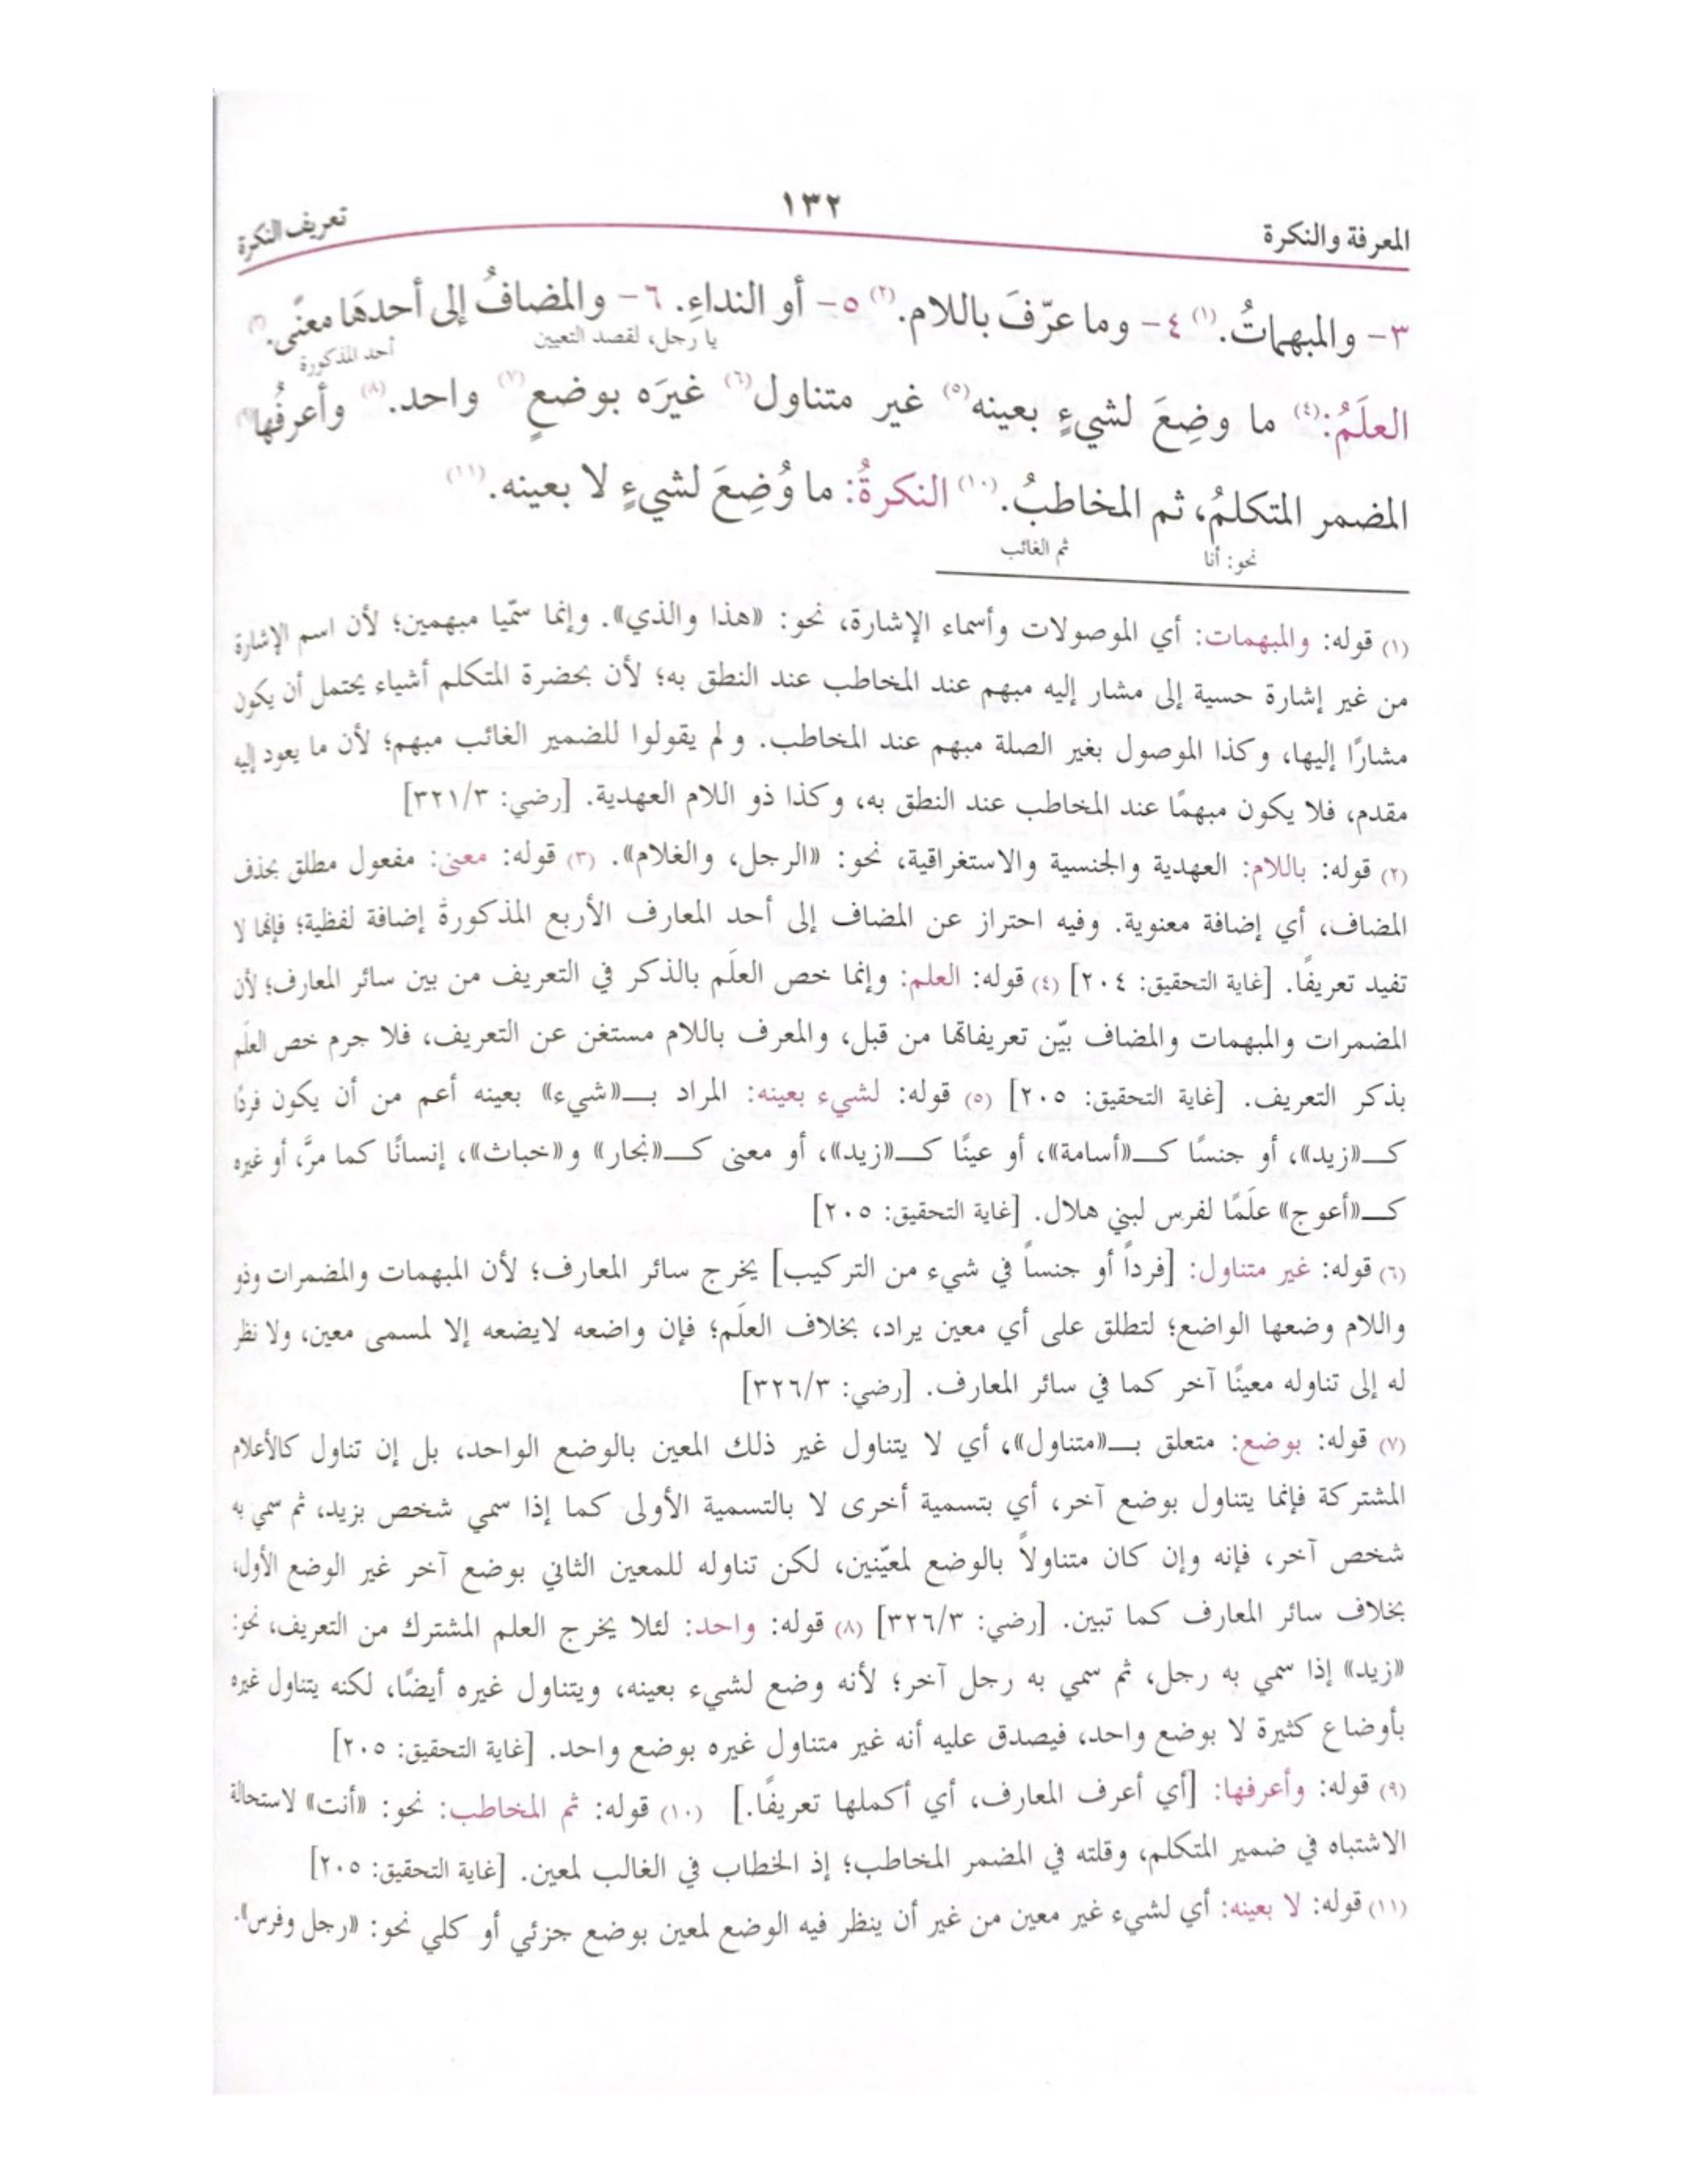 المعرفة والنكرة ١٣٢ تعريف النكرة
٣- والمبهماتُ.(١) ٤- وما عرّفَ باللام.(٢) ٥- أو النداءِ. ٦- والمضافُ إلى أحدهَا معنًى.(٣)
يا رجل، لقصد التعيين أحد المذكورة
العلَمُ:(٤) ما وضِعَ لشيءٍ بعينه(٥) غير متناول(٦) غيرَه بوضعٍ(٧) واحد.(٨) وأعرفُها(٩)
المضمر المتكلمُ، ثم المخاطبُ.(١٠) النكرةُ: ما وُضِعَ لشيءٍ لا بعينه.(١١)
نحو: أنا ثم الغائب
(١) قوله: والمبهمات: أي الموصولات وأسماء الإشارة، نحو: «هذا والذي». وإنما سمّيا مبهمين؛ لأن اسم الإشارة
من غير إشارة حسية إلى مشار إليه مبهم عند المخاطب عند النطق به؛ لأن بحضرة المتكلم أشياء يحتمل أن يكون
مشارًا إليها، وكذا الموصول بغير الصلة مبهم عند المخاطب. ولم يقولوا للضمير الغائب مبهم؛ لأن ما يعود إليه
مقدم، فلا يكون مبهمًا عند المخاطب عند النطق به، وكذا ذو اللام العهدية. [رضي: ٣٢١/٣]
(٢) قوله: باللام: العهدية والجنسية والاستغراقية، نحو: «الرجل، والغلام». (٣) قوله: معنى: مفعول مطلق بحذف
المضاف، أي إضافة معنوية. وفيه احتراز عن المضاف إلى أحد المعارف الأربع المذكورة إضافة لفظية؛ فإنها لا
تفيد تعريفًا. [غاية التحقيق: ٢٠٤] (٤) قوله: العلم: وإنما خص العلَم بالذكر في التعريف من بين سائر المعارف؛ لأن
المضمرات والمبهمات والمضاف بيّن تعريفاتها من قبل، والمعرف باللام مستغن عن التعريف، فلا جرم خص العلَم
بذكر التعريف. [غاية التحقيق: ٢٠٥] (٥) قوله: لشيء بعينه: المراد بـ«شيء» بعينه أعم من أن يكون فردًا
كـ«زيد»، أو جنسًا كـ«أسامة»، أو عينًا كـ«زيد»، أو معنى كـ«نجار» و«خباث»، إنسانًا كما مرَّ، أو غيره
كـ«أعوج» علَمًا لفرس لبني هلال. [غاية التحقيق: ٢٠٥]
(٦) قوله: غير متناول: [فرداً أو جنساً في شيء من التركيب] يخرج سائر المعارف؛ لأن المبهمات والمضمرات وذو
واللام وضعها الواضع؛ لتطلق على أي معين يراد، بخلاف العلَم؛ فإن واضعه لايضعه إلا لمسمى معين، ولا نظر
له إلى تناوله معينًا آخر كما في سائر المعارف. [رضي: ٣٢٦/٣]
(٧) قوله: بوضع: متعلق بـ«متناول»، أي لا يتناول غير ذلك المعين بالوضع الواحد، بل إن تناول كالأعلام
المشتركة فإنما يتناول بوضع آخر، أي بتسمية أخرى لا بالتسمية الأولى كما إذا سمي شخص بزيد، ثم سمي به
شخص آخر، فإنه وإن كان متناولاً بالوضع لمعيّنين، لكن تناوله للمعين الثاني بوضع آخر غير الوضع الأول،
بخلاف سائر المعارف كما تبين. [رضي: ٣٢٦/٣] (٨) قوله: واحد: لئلا يخرج العلم المشترك من التعريف، نحو:
«زيد» إذا سمي به رجل، ثم سمي به رجل آخر؛ لأنه وضع لشيء بعينه، ويتناول غيره أيضًا، لكنه يتناول غيره
بأوضاع كثيرة لا بوضع واحد، فيصدق عليه أنه غير متناول غيره بوضع واحد. [غاية التحقيق: ٢٠٥]
(٩) قوله: وأعرفها: [أي أعرف المعارف، أي أكملها تعريفًا.] (١٠) قوله: ثم المخاطب: نحو: «أنت» لاستحالة
الاشتباه في ضمير المتكلم، وقلته في المضمر المخاطب؛ إذ الخطاب في الغالب لمعين. [غاية التحقيق: ٢٠٥]
(١١) قوله: لا بعينه: أي لشيء غير معين من غير أن ينظر فيه الوضع لمعين بوضع جزئي أو كلي نحو: «رجل وفرس».